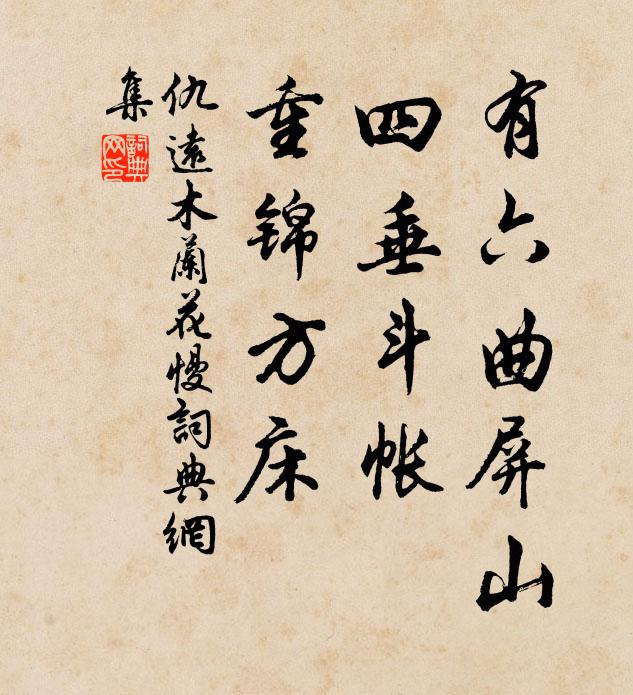 有六曲屏山
四垂斗帐
重锦方床
仇遠木蘭花慢詞典網
集
詞典
网印